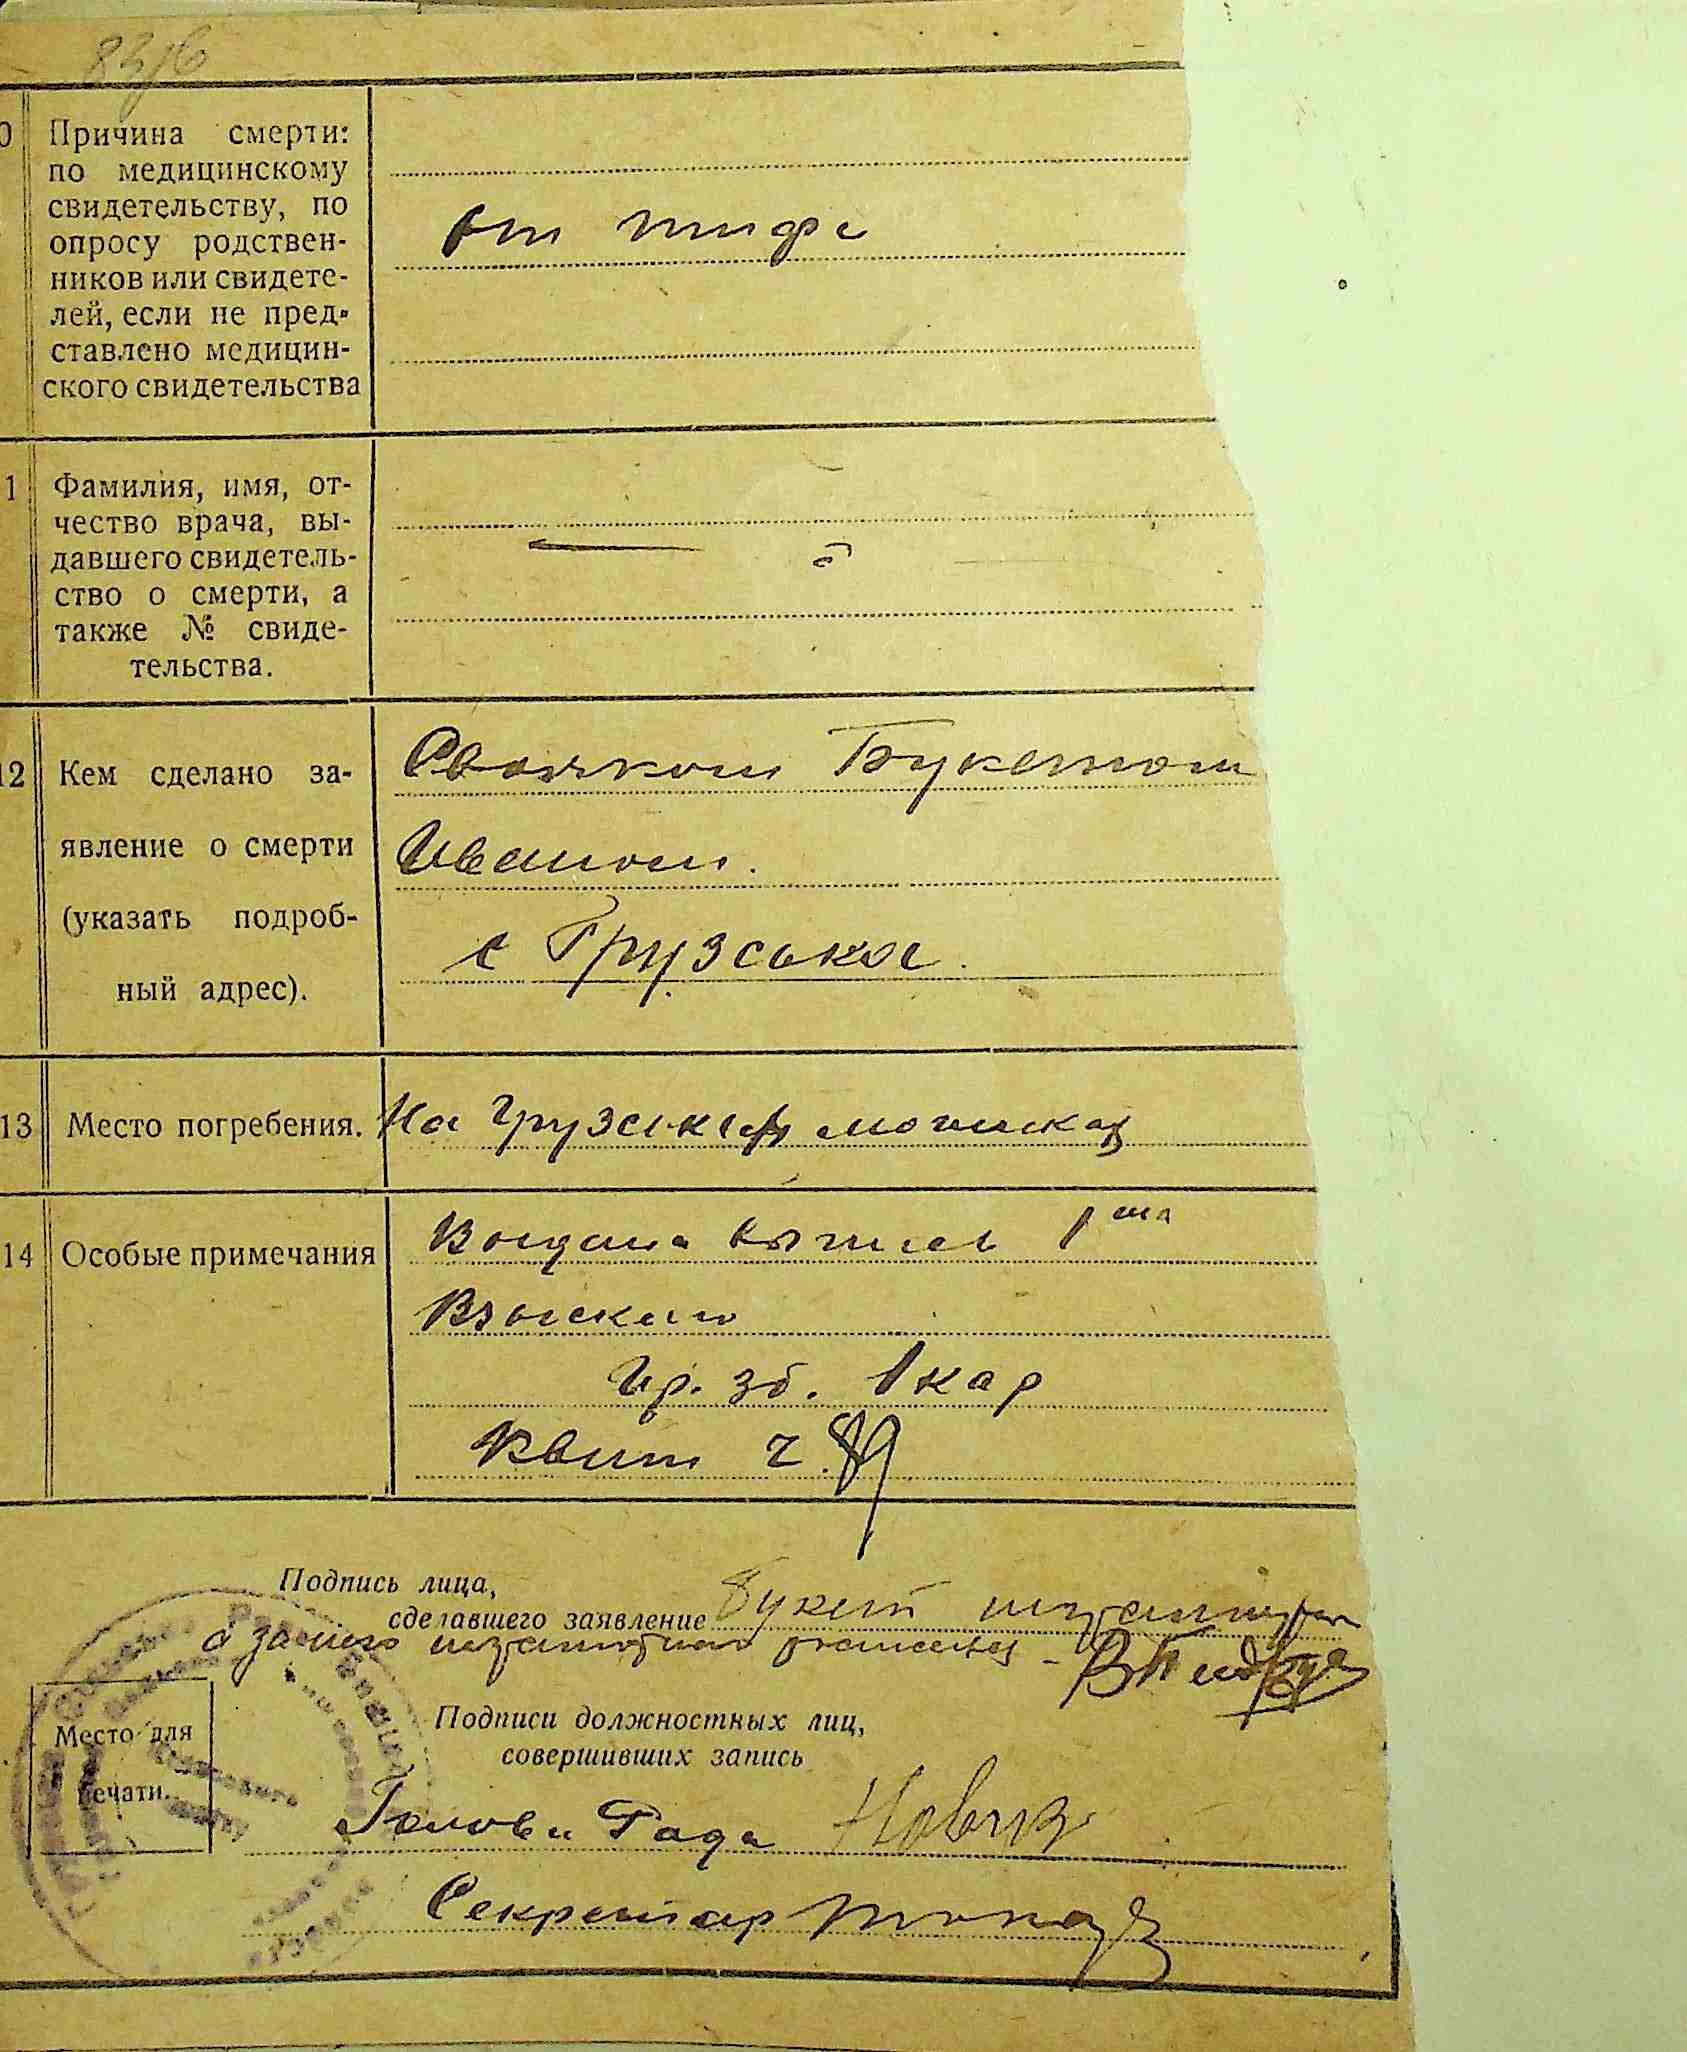 83/6
Причина смерти:
по медицинскому
свидетельству, по
опросу родствен-
ников или свидете-
лей, если не пред-
ставлено медицин-
ского свидетельства
от тифа
1 Фамилия, имя, от-
чество врача, вы-
давшего свидетель-
ство о смерти, а
также № свиде-
тельства.
12 Кем сделано за-
явление о смерти
(указать подроб-
ный адрес).
Свояком Букетом
Иваном.
с Грузська.
13 Место погребения. На Грузськ могилках
14 Особые примечания
1
гр. зб. 1 кар
Квит ч. 89
Подпись лица,
сделавшего заявление Букет неграмотн
а за него неграмотного
Место для
печати.
Подписи должностных лиц,
совершивших запись
Голова Рада Новик
Секретар